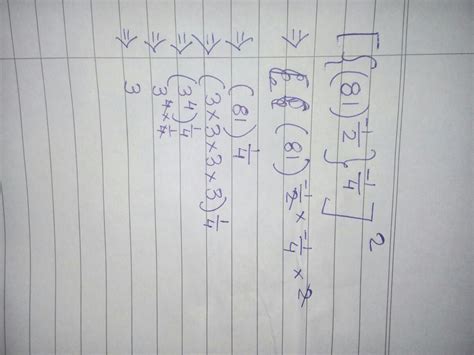 [{(81)^{-1/2}}^{-1/4}]^2
⇒ (81)^{-1/2 × -1/4 × 2}
⇒ (81)^{1/4}
⇒ (3×3×3×3)^{1/4}
⇒ (3^4)^{1/4}
⇒ 3^{4×1/4}
⇒ 3